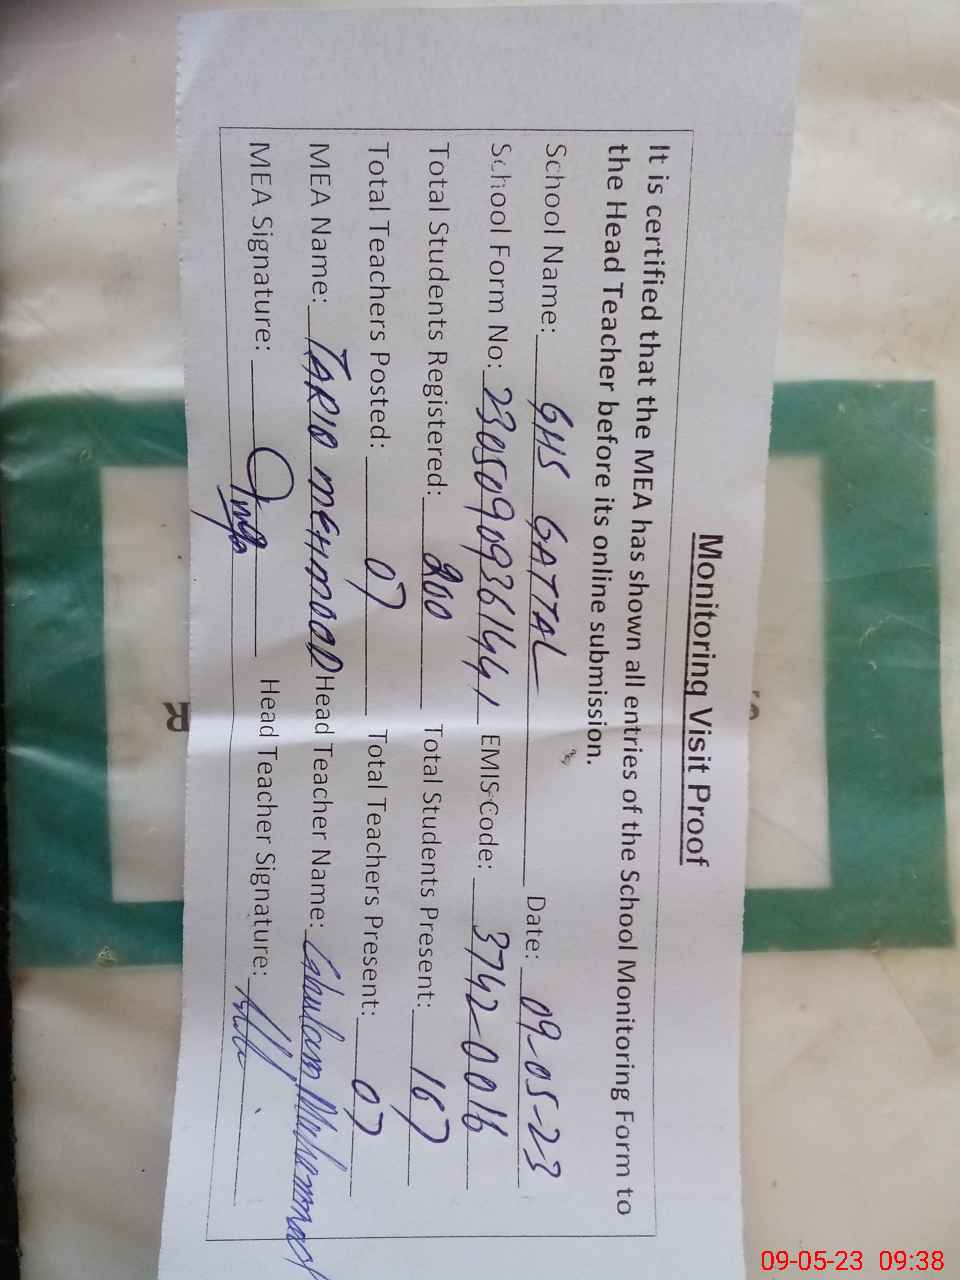 Monitoring Visit Proof
It is certified that the MEA has shown all entries of the School Monitoring Form to
the Head Teacher before its online submission.
School Name: GHS GATTAL Date: 09-05-23
School Form No: 23050909361441 EMIS Code: 3742-0016
Total Students Registered: 200 Total Students Present: 167
Total Teachers Posted: 07 Total Teachers Present: 07
MEA Name: TARIQ MEHMOOD Head Teacher Name: Ghulam Muhammad
MEA Signature: Head Teacher Signature:
R
09-05-23 09:38